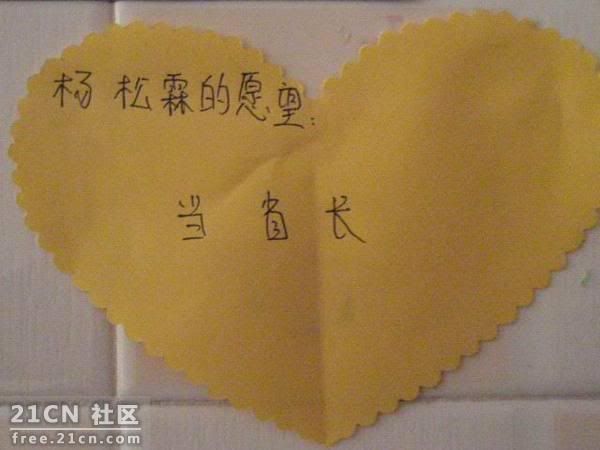 杨松霖的愿望:
当省长
21CN 社区
free.21cn.com